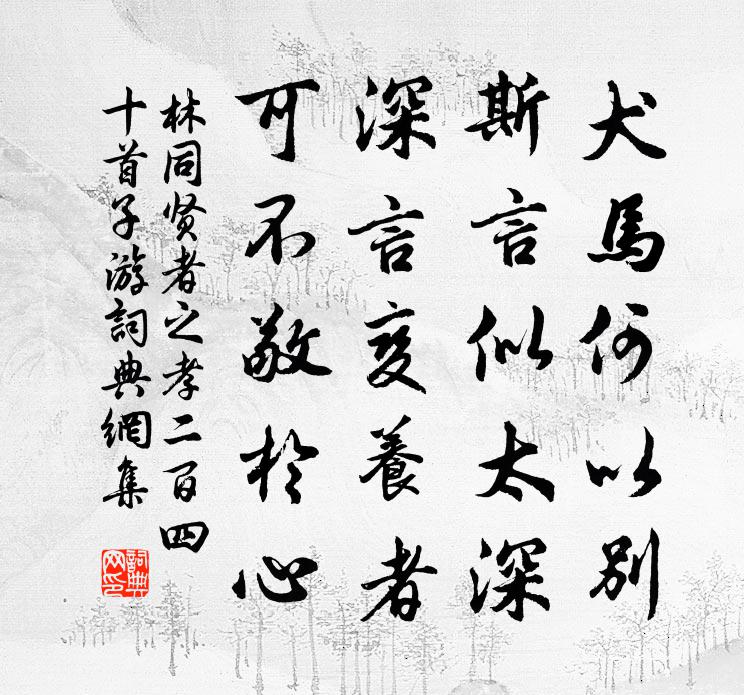 犬馬何以別
斯言似太深
深言变養者
可不敬於心
林同贤者之孝二百四
十首子游詞典網集
詞典网印